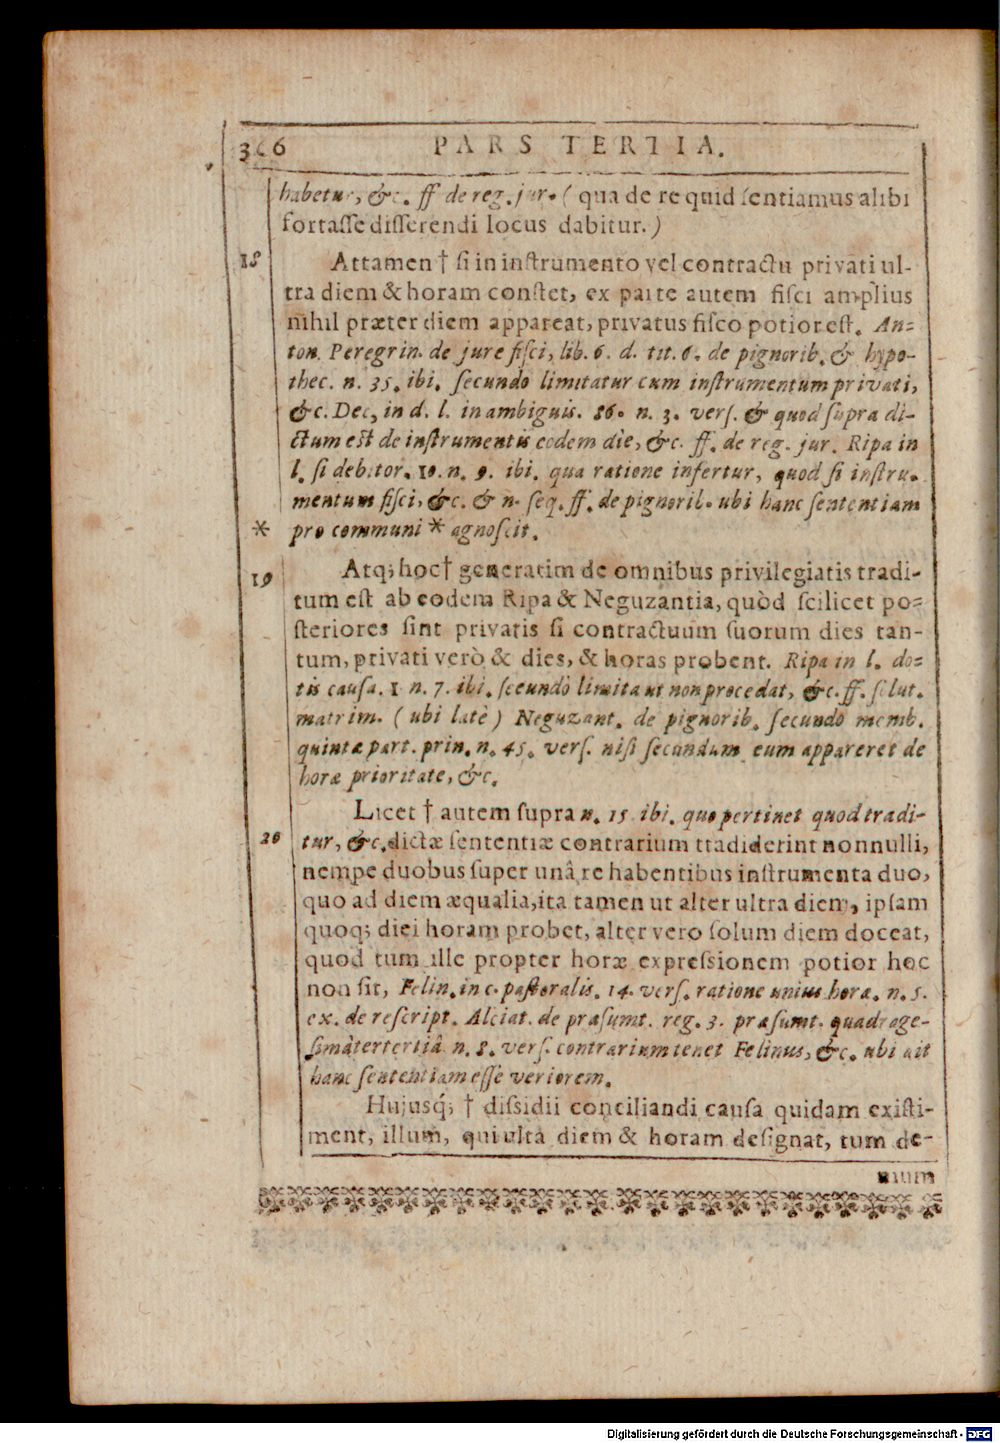 366 PARS TERTIA.
habetur, &c. ff de reg. jur. ( qua de re quid sentiamus alibi
fortasse disserendi locus dabitur.)
18 Attamen † si in instrumento vel contractu privati ul-
tra diem & horam constet, ex parte autem fisci amplius
nihil præter diem appareat, privatus fisco potior est. An-
ton. Peregrin. de jure fisci, lib. 6. d. tit. 6. de pignorib. & hypo-
thec. n. 35. ibi. secundo limitatur cum instrumentum privati,
&c. Dec, in d. l. in ambiguis. 86. n. 3. vers. & quod supra di-
ctum est de instrumentis eodem die, &c. ff. de reg. jur. Ripa in
l. si debitor. 10. n. 9. ibi. qua ratione infertur, quod si instru-
mentum fisci, &c. & n. seq. ff. de pignorib. ubi hanc sententiam
* pro communi * agnoscit.
19 Atq; hoc † generatim de omnibus privilegiatis tradi-
tum est ab eodem Ripa & Neguzantia, quòd scilicet po-
steriores sint privatis si contractuum suorum dies tan-
tum, privati verò & dies, & horas probent. Ripa in l. do-
tis causa. 1 n. 7. ibi. secundò limita ut non procedat, &c. ff. solut.
matrim. ( ubi latè ) Neguzant. de pignorib. secundo memb.
quintæ part. prin. n. 45. vers. nisi secundum eum appareret de
horæ prioritate, &c.
Licet † autem supra n. 15 ibi. quo pertinet quod tradi-
20 tur, &c. dictæ sententiæ contrarium ttadiderint nonnulli,
nempe duobus super unâ re habentibus instrumenta duo,
quo ad diem æqualia, ita tamen ut alter ultra diem, ipsam
quoq; diei horam probet, alter vero solum diem doceat,
quod tum ille propter horæ expressionem potior hoc
non sit, Felin. in c. pastoralis. 14. vers. ratione unius hora. n. 5.
ex. de rescript. Alciat. de præsumt. reg. 3. præsumt. quadrage-
simâ tertertiâ n. 8. vers. contrarium tenet Felinus, &c. ubi ait
hanc sententiam esse veriorem.
Hujusq; † dissidii conciliandi causa quidam existi-
ment, illum, qui ulta diem & horam designat, tum de-
mum
Digitalisierung gefördert durch die Deutsche Forschungsgemeinschaft - DFG